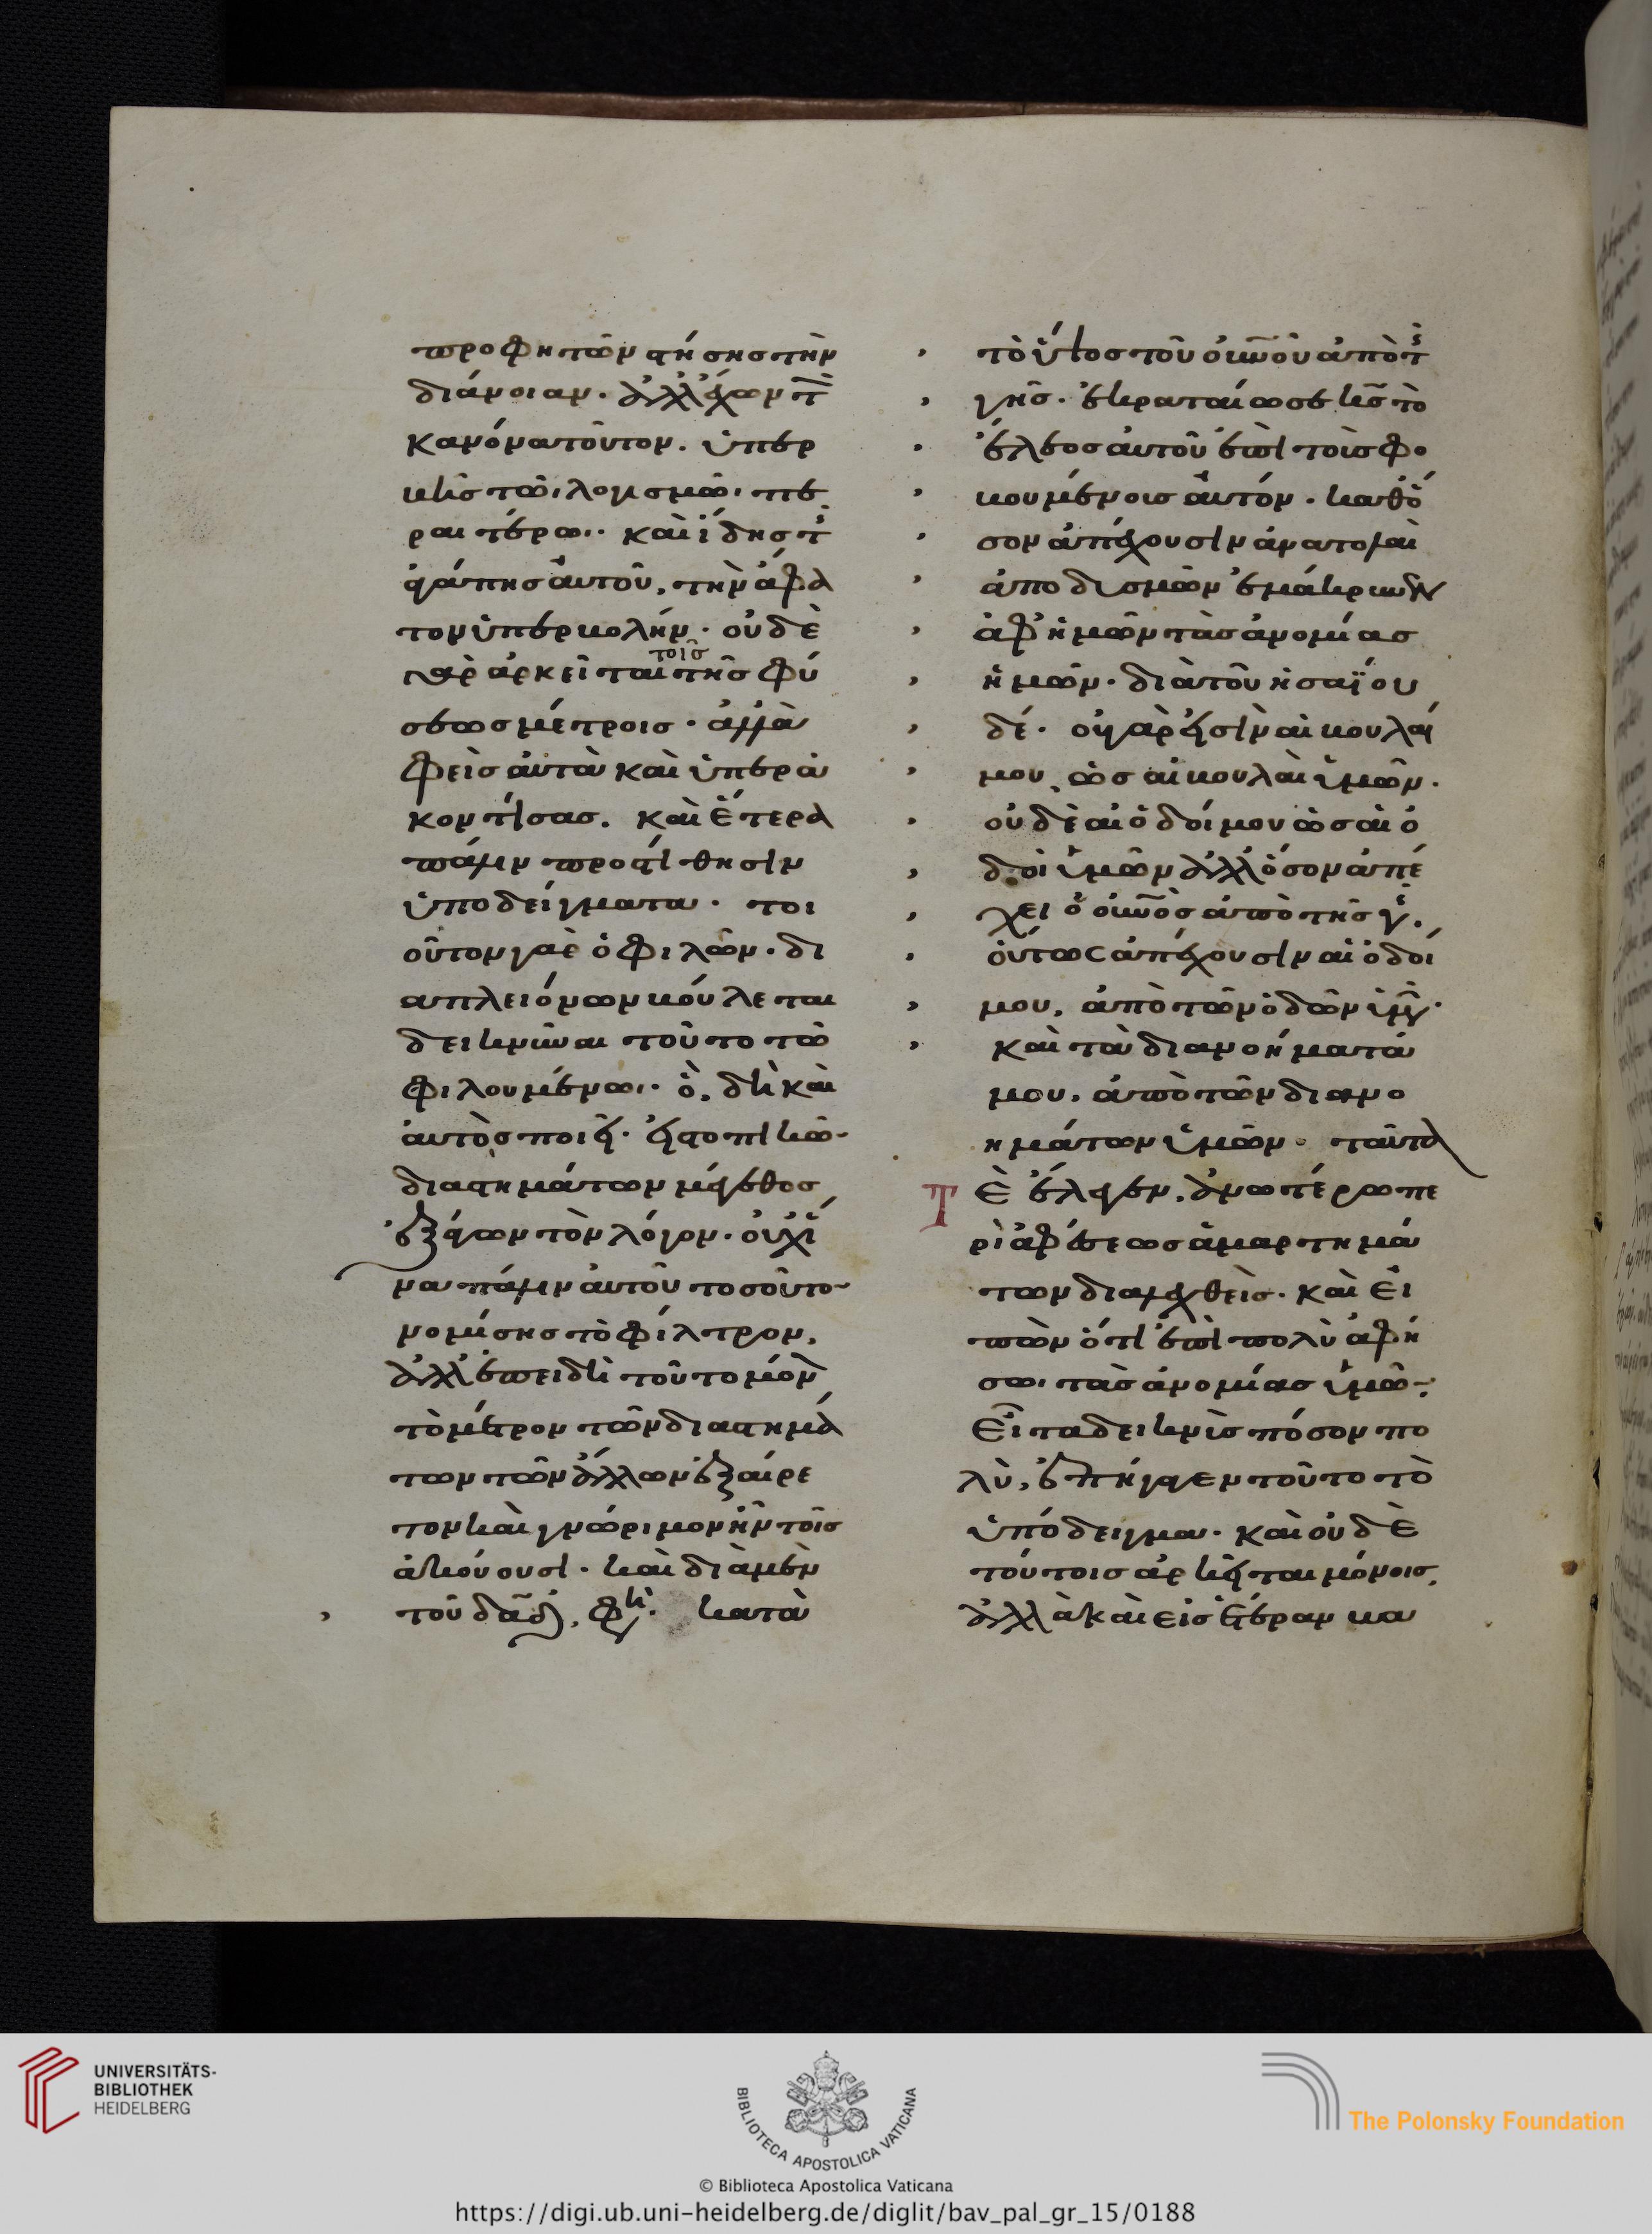 προφητῶν στήσῃς τὴν
διάνοιαν. ἀλλ' ἔχων τ
κανόνα τοῦτον. ὑπερ
βῇς τῶι λογισμῶι πε
ραιτέρω. καὶ ἴδῃς τ
ἀγάπης αὐτοῦ, τὴν ἄφα
τον ὑπερβολήν. οὐδὲ
γὰρ ἀρκεῖται τοῖς τῆς φύ
σεως μέτροις. ἀλλὰ
φεὶς αὐτὰ καὶ ὑπερα
κοντίσας. καὶ ἕτερα
πάλιν προστίθησιν
ὑποδείγματα. τοι
οῦτον γὰρ ὁ φιλῶν. δι
α πλειόνων βούλεται
δεικνῦναι τοῦτο τῶ
φιλουμένωι. ὃ, δὴ καὶ
αὐτὸς ποιεῖ. ἐς τοπικῶ
διαστημάτων μέγεθος
ἐξάγων τὸν λόγον. οὐχ ἵ
να πάλιν αὐτοῦ τοσοῦτο
νομίσῃς τὸ φίλτρον,
ἀλλ' ἐπειδὴ τοῦτο μόν
τὸ μέτρον τῶν διαστημά
των τῶν ἄλλων ἐξαίρε
τον καὶ γνώριμον ἦν τοῖς
ἀκούουσι. καὶ διὰ μὲν
τοῦ δαδ, φη. κατὰ
τὸ ὕψος τοῦ οὐνοῦ ἀπὸ τ
γῆς. ἐκραταίωσε κς τὸ
ἔλεος αὐτοῦ ἐπὶ τοὺς φο
βουμένους αὐτόν. καθό
σον ἀπέχουσιν ἀνατολαὶ
ἀπὸ δυσμῶν ἐμάκρυνεν
ἀφ' ἡμῶν τὰς ἀνομίας
ἡμῶν. διὰ τοῦ ἡσαΐου
δέ. οὐ γάρ εἰσιν αἱ βουλαί
μου, ὡς αἱ βουλαὶ ὑμῶν.
οὐδὲ αἱ ὁδοί μου ὡς αἱ ὁ
δοὶ ὑμῶν ἀλλ' ὅσον ἀπέ
χει ὁ οὐνὸς ἀπὸ τῆς γ.
οὕτως ἀπέχουσιν αἱ ὁδοί
μου, ἀπὸ τῶν ὁδῶν ὑμ.
καὶ τὰ διανοήματά
μου, ἀπὸ τῶν διανο
ημάτων ὑμῶν. ταῦτα
Τ ὲ ἔλεγεν, ἀνωτέρω πε
ρὶ ἀφέσεως ἁμαρτημά
των διαλεχθείς. καὶ εἰ
πὼν ὅτι ἐπὶ πολὺ ἀφή
σω τὰς ἀνομίας ὑμῶ.
Εἶτα δεικνὺς πόσον πο
λὺ, ἐπήγαγεν τοῦτο τὸ
ὑπόδειγμα. καὶ οὐδὲ
τούτοις ἀρκεῖται μόνοις,
ἀλλὰ καὶ εἰς ἑτέραν κα
UNIVERSITÄTS-
BIBLIOTHEK
HEIDELBERG
BIBLIOTECA APOSTOLICA VATICANA
The Polonsky Foundation
© Biblioteca Apostolica Vaticana
https://digi.ub.uni-heidelberg.de/diglit/bav_pal_gr_15/0188